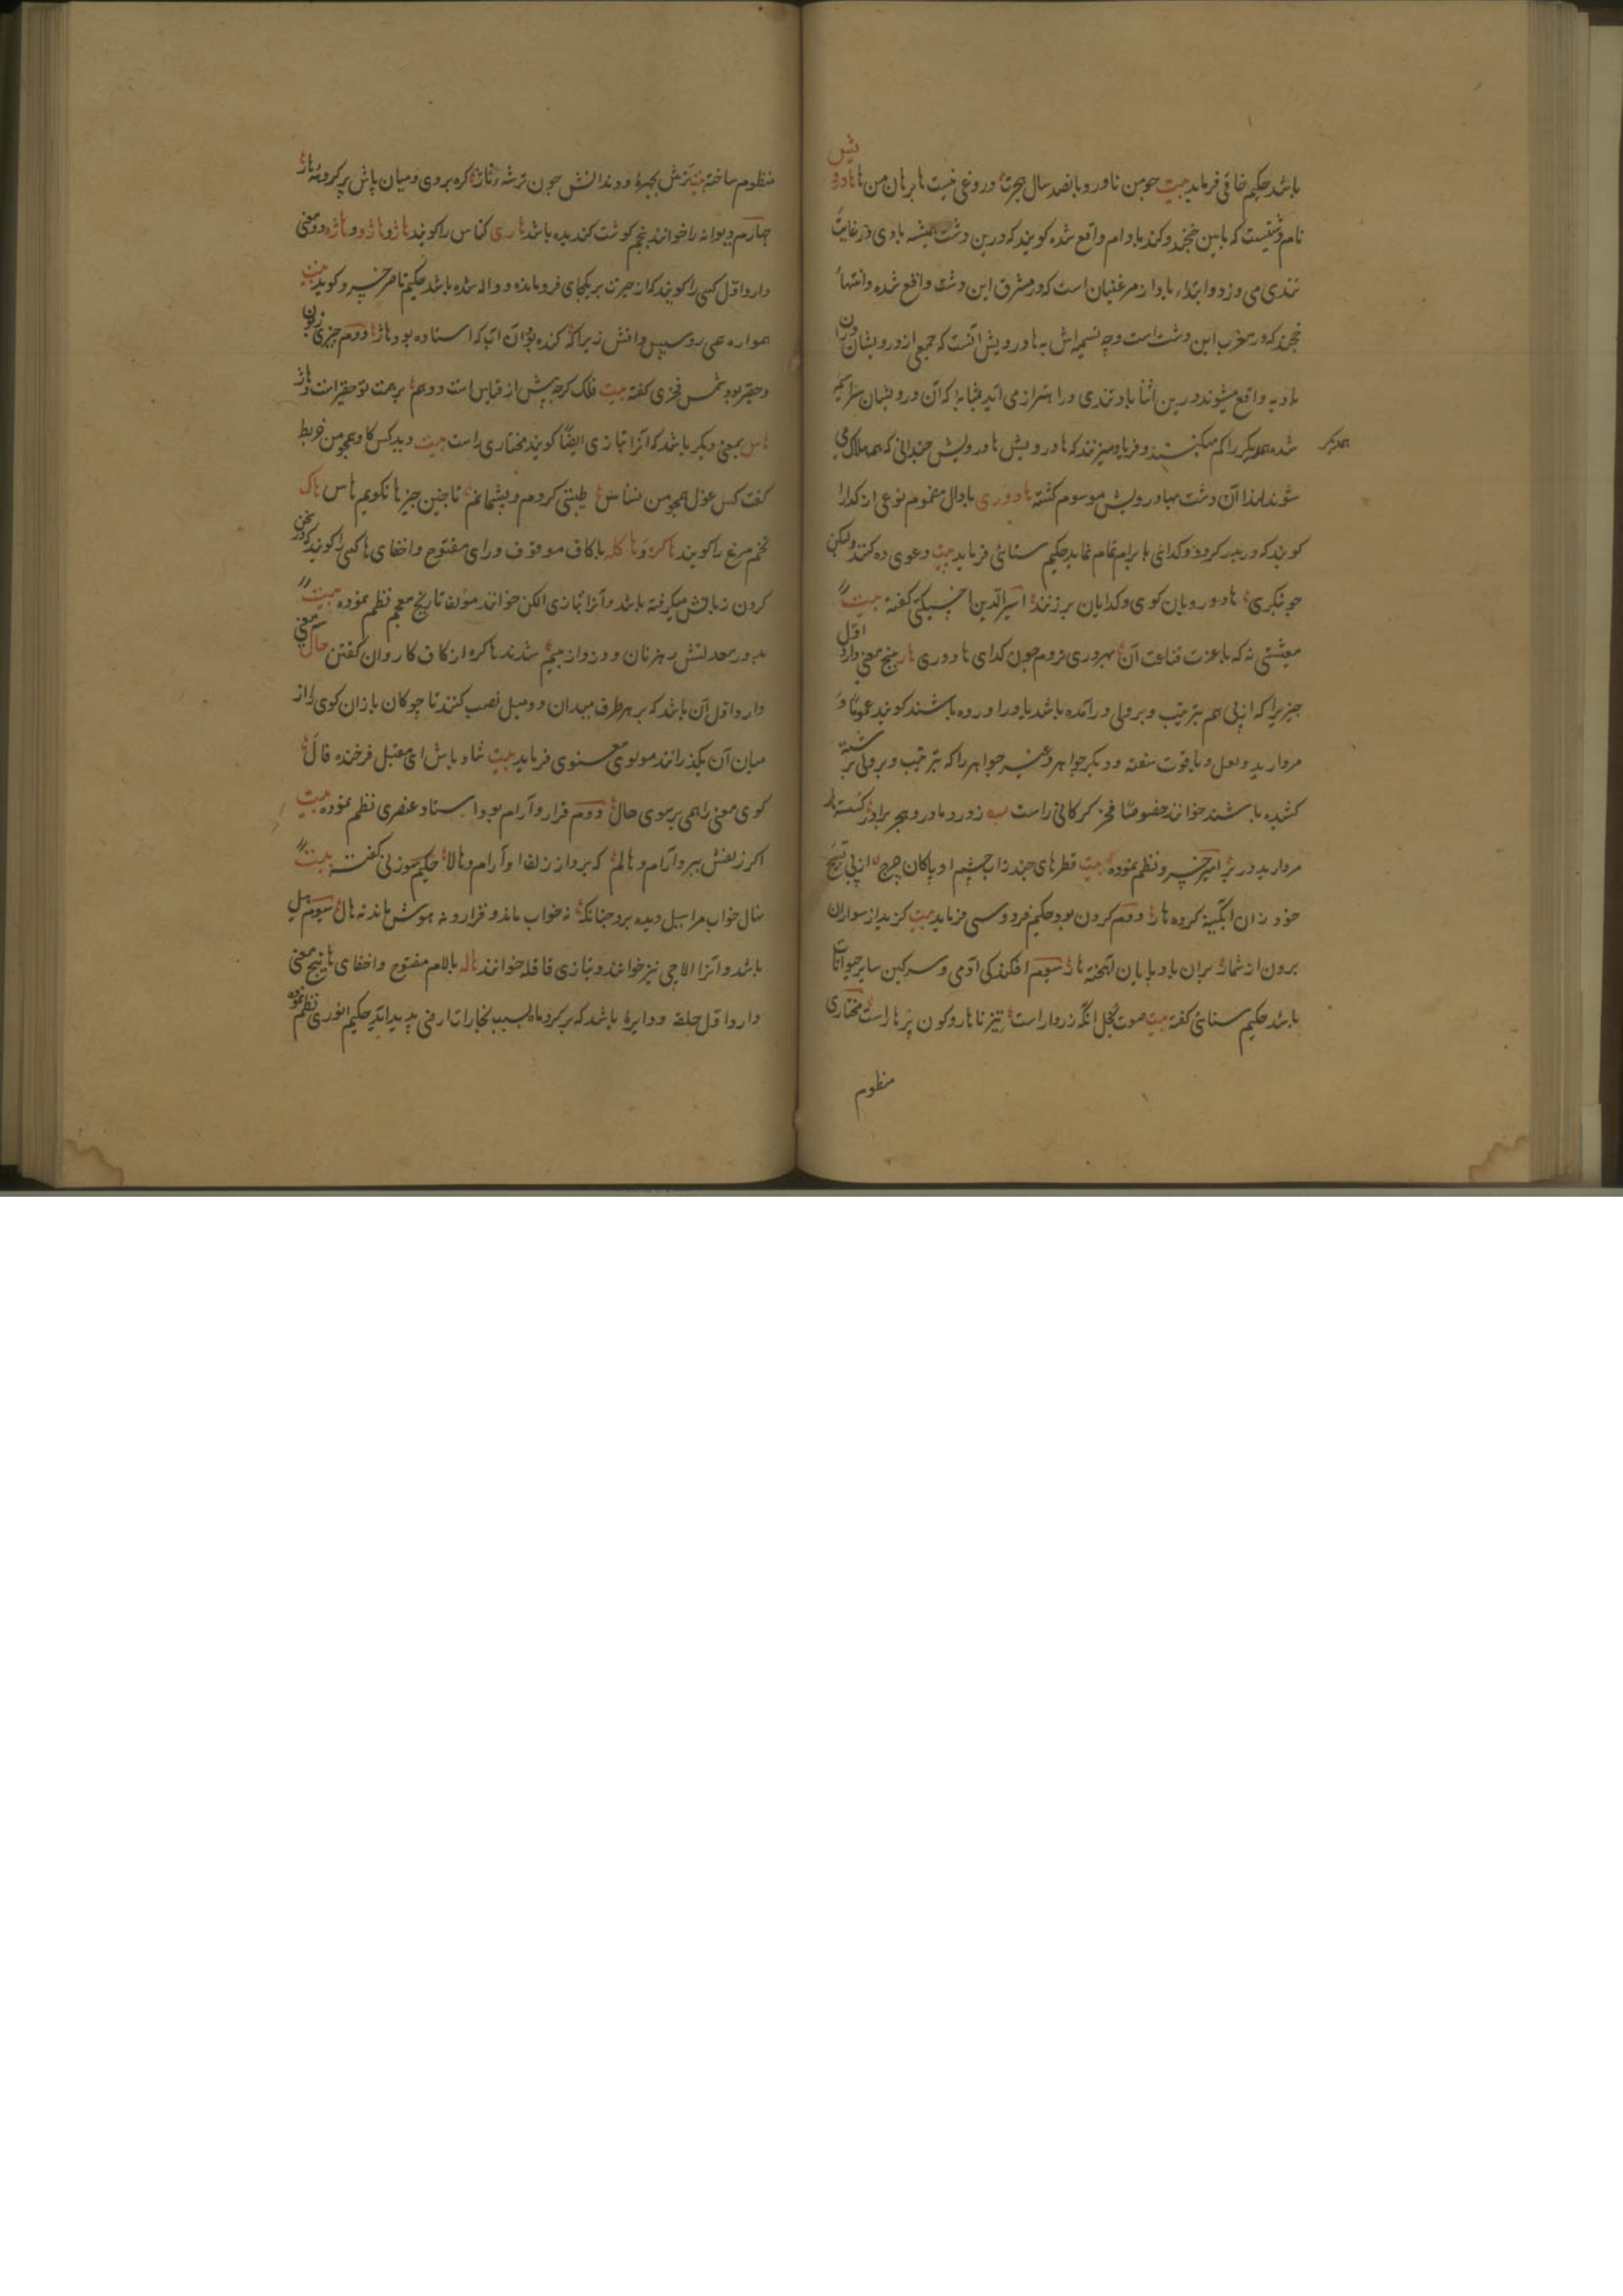 باشد حکیم خاقانی فرماید بیت چو من ناورد پانصد سال هجرت دروغی نیست ها برهان من ها هادرویش
نام دشتیست که مابین خجند و کند بادام واقع شده کویند که درین دشت همیشه بادی در غایت
تندی می وزد و ابتداء باد از مرغنیان است که در مشرق این دشت واقع شده و انتهاء
خجند که در مغرب این دشت است وجه تسمیه اش به هادرویش آنست که جمعی از درویشان در آن
بادیه واقع میشوند درین اثنا باد تندی در اهتزاز می آید بمثابه که آن درویشان سراسیمه
شده همدیکر را کم میکنند و فریاد میزنند که هادرویش هادرویش چندانی که هلاک می
شوند لهذا آن دشت بهادرویش موسوم کشته هادوری بادال مضموم نوعی از کدا را
کویند که دربدر کردد و کدائی با برام تمام نماید حکیم سنائی فرماید بیت دعوی ده کنند ولیکن
چو بنکری هادوریان کوی و کدایان برزنند اثیر الدین اخسیکتی کفته بیت
معیشتی نه که با عزت قناعت آن بهر دری نروم چون کدای هادوری هار پنج معنی دارد اول
چیزیرا که از پی هم بترتیب و بر ولی در آمده باشد یا در آورده باشند کویند عموماً و
مروارید و لعل و یاقوت سفته و دیکر جواهر و غیر جواهر را که بترتیب و بر ولی برشته
کشیده باشند خوانند خصوصاً فخر کرکانی راست بیت ز درد مادر و هجر برادر کسسته هار
مروارید در بر امیر خسرو نظم نموده بیت قطرهای چند زاب چشم او پاکان چرخ از پی تسبیح
خود زان آبکینه کرده هار دوم کردن بود حکیم فردوسی فرماید بیت کزید از سواران
برون از شمار بران بادپایان آهخته هار سوم افکندکی آدمی و سرکین سایر حیوانات
باشد حکیم سنائی کفته بیت صوت کل انکر زردار است تیز نا هار و کون پر هار است مختاری
همدیکر
منظوم
منظوم ساخته بیت ترش بچهره و دندانش چون ترشه ناز کره بروی و میان پاش پر کرویه هار
چهارم دیوانه را خوانند پنجم کوشت کندیده باشد هاری کناس را کویند هاژ و هاژ و و هاژه دو معنی
دارد اول کسی را کویند که از حیرت بر یکجای فرو مانده و واله شده باشد حکیم ناصر خسرو کوید بیت
همواره همی رو سپس دانش زیرا که کنده بود آن آب که استاده بود هاژ دوم چیزی زبون
و حقیر بود شمس فخری کفته بیت فلک کرچه بیش از قیاس است و وهم بر همت تو حقیر است و هاژ
هاس بمعنی دیکر باشد که آنرا بتازی ایضاً کویند مختاری راست بیت دید کس کاو همچو من خربط
کفت کس غول همچو من نسناس طیبتی کردم و پشیمانم تا چنین چیزها نکویم هاس هاک
تخم مرغ را کویند هاکره و هاکله با کاف موقوف و رای مفتوح و اخفای ها کسی را کویند که در سخن
کردن زبانش میکرفته باشد و آنرا بتازی الکن خوانند مؤلف تاریخ معجم نظم نموده بیت
بدور معدلتش رهزنان و دزد از بیم شدند هاکره از کاف کاروان کفتن هال سه معنی
دارد اول آن باشد که بر هر طرف میدان دو میل نصب کنند تا چوکان بازان کوی را از
میان آن بکذرانند مولوی معنوی فرماید بیت شاد باش ای مقبل فرخنده فال
کوی معنی را همی بر سوی هال دوم قرار و آرام بود استاد عنصری نظم نموده بیت
اکر زلفش ببرد آرام و هالم که برد از زلفا و آرام و هالا حکیم سوزنی کفته بیت
منال خواب مرا سیل دیده برد چنانکه نه خواب ماند و قرار و نه هوش ماند نه هال سیوم هیل
باشد و آنرا الاچی نیز خوانند و بتازی قاقله خوانند هاله بالام مفتوح و اخفای ها پنج معنی
دارد اول حلقه و دایره باشد که بر کرد ماه بسبب بخارات ارضی پدید آید حکیم انوری نظم نموده